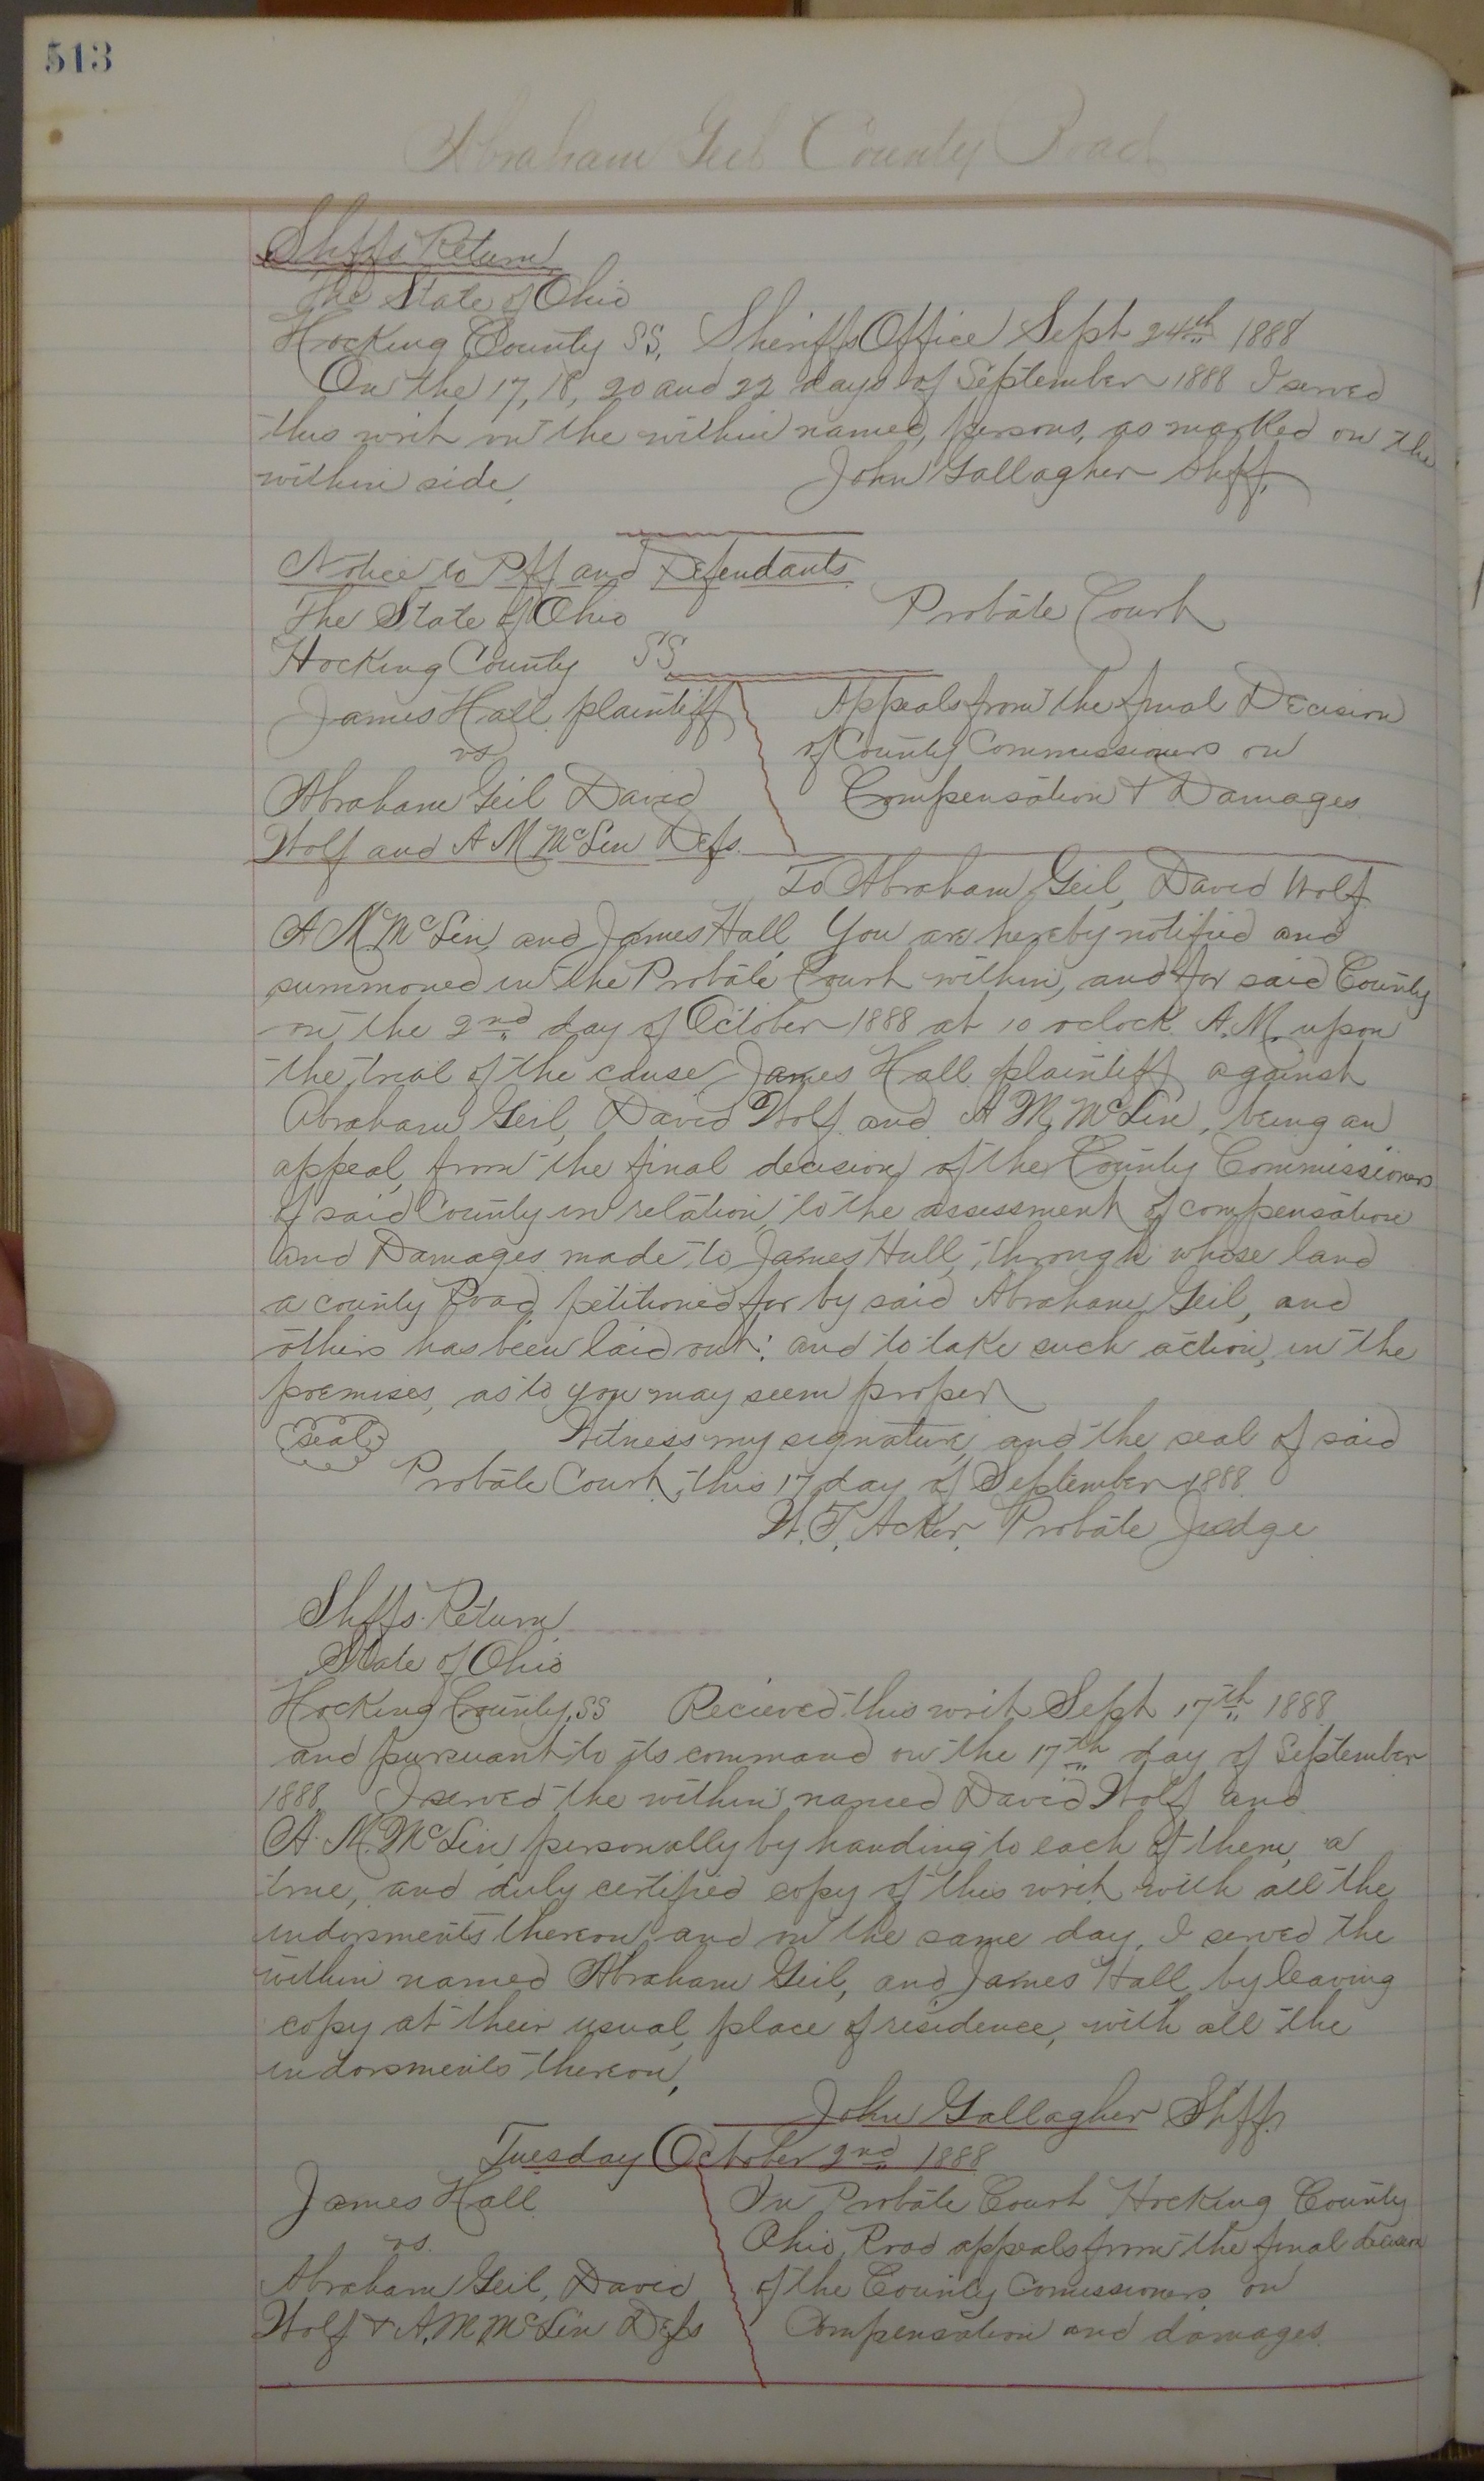 513
Abraham Geil County Road
Shffs Return
The State of Ohio
Hocking County SS, Sheriffs Office Sept 24th 1888
On the 17, 18, 20 and 22 days of September 1888 I served
this writ on the within named, persons, as marked on the
within side, John Gallagher Shff,
Notice to Plff and Defendants
The State of Ohio Probate Court
Hocking County SS
James Hall plaintiff Appeals from the final Decision
vs of County Commissioners on
Abraham Geil David Compensation & Damages
Wolf and A M McLin Defs.
To Abraham Geil, David Wolf
A M. McLin, and James Hall, You are hereby notified and
summoned in the Probate Court within, and for said County
on the 2nd day of October 1888 at 10 oclock A.M. upon
the trial of the cause James Hall plaintiff against
Abraham Geil, David Wolf and A M, McLin, being an
appeal, from the final decision of the County Commissioners
of said County in relation, to the assessment of compensation
and Damages made to James Hall, through whose land
a county Road, petitioned for by said Abraham Geil, and
others has been laid out: and to take such action, in the
premises, as to you may seem proper
seal Witness my signature, and the seal of said
Probate Court, this 17 day of September 1888
W. T, Acker, Probate Judge
Shffs. Return
State of Ohio
Hocking County, SS Recieved this writ Sept 17th 1888
and pursuant to its command on the 17th day of September
1888 I served the within named David Wolf and
A. M. McLin, personally by handing to each of them, a
true, and duly certified copy of this writ with all the
indorsments thereon, and on the same day, I served the
within named Abraham Geil, and James Hall, by leaving
copy at their usual, place of residence, with all the
indorsments thereon,
John Gallagher Shff.
Tuesday October 2nd 1888
James Hall In Probate Court Hocking County
vs. Ohio, Road appeals from the final decision
Abraham Geil, David of the County Comissioners on
Wolf & A, M, McLin Defs Compensation and damages.